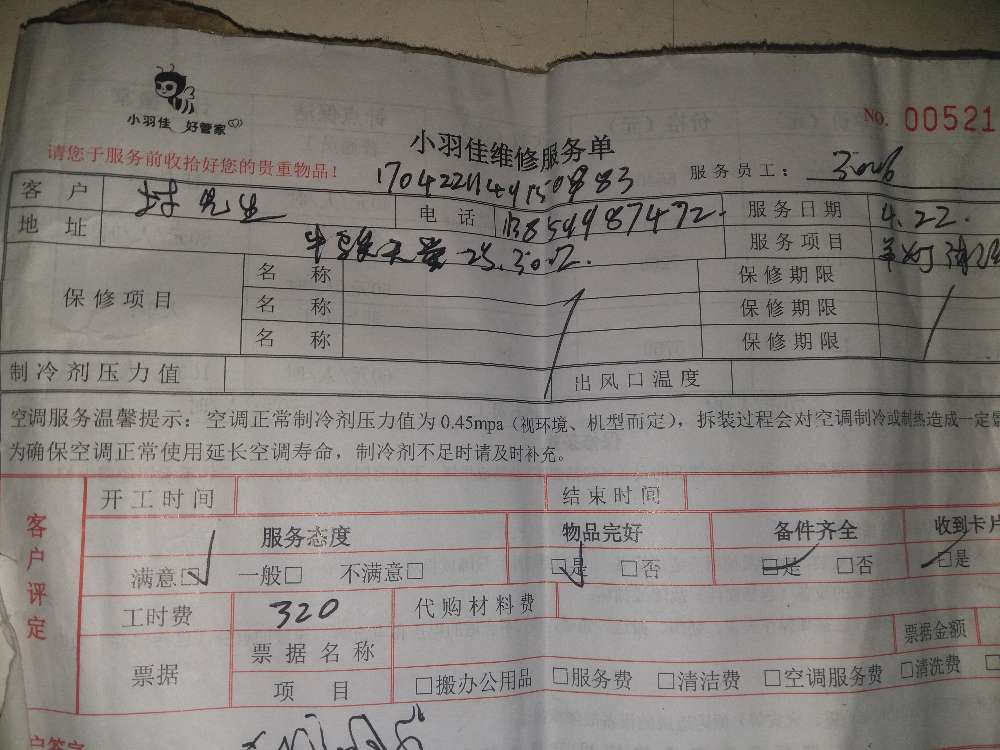 小羽佳 好管家
No. 00521
小羽佳维修服务单
请您于服务前收拾好您的贵重物品！
服务员工：
客户 先生 电话 13859987472 服务日期 4.22.
地址 25.3002. 服务项目
保修项目 名称 保修期限
名称 保修期限
名称 保修期限
制冷剂压力值 出风口温度
空调服务温馨提示：空调正常制冷剂压力值为0.45mpa（视环境、机型而定），拆装过程会对空调制冷或制热造成一定
为确保空调正常使用延长空调寿命，制冷剂不足时请及时补充。
客户评定
开工时间 结束时间
服务态度 物品完好 备件齐全 收到卡片
满意☑ 一般□ 不满意□ ☑是 □否 ☑是 □否 ☑是
工时费 320 代购材料费
票据 票据名称 票据金额
项目 □搬办公用品 □服务费 □清洁费 □空调服务费 □清洗费 □
户签字